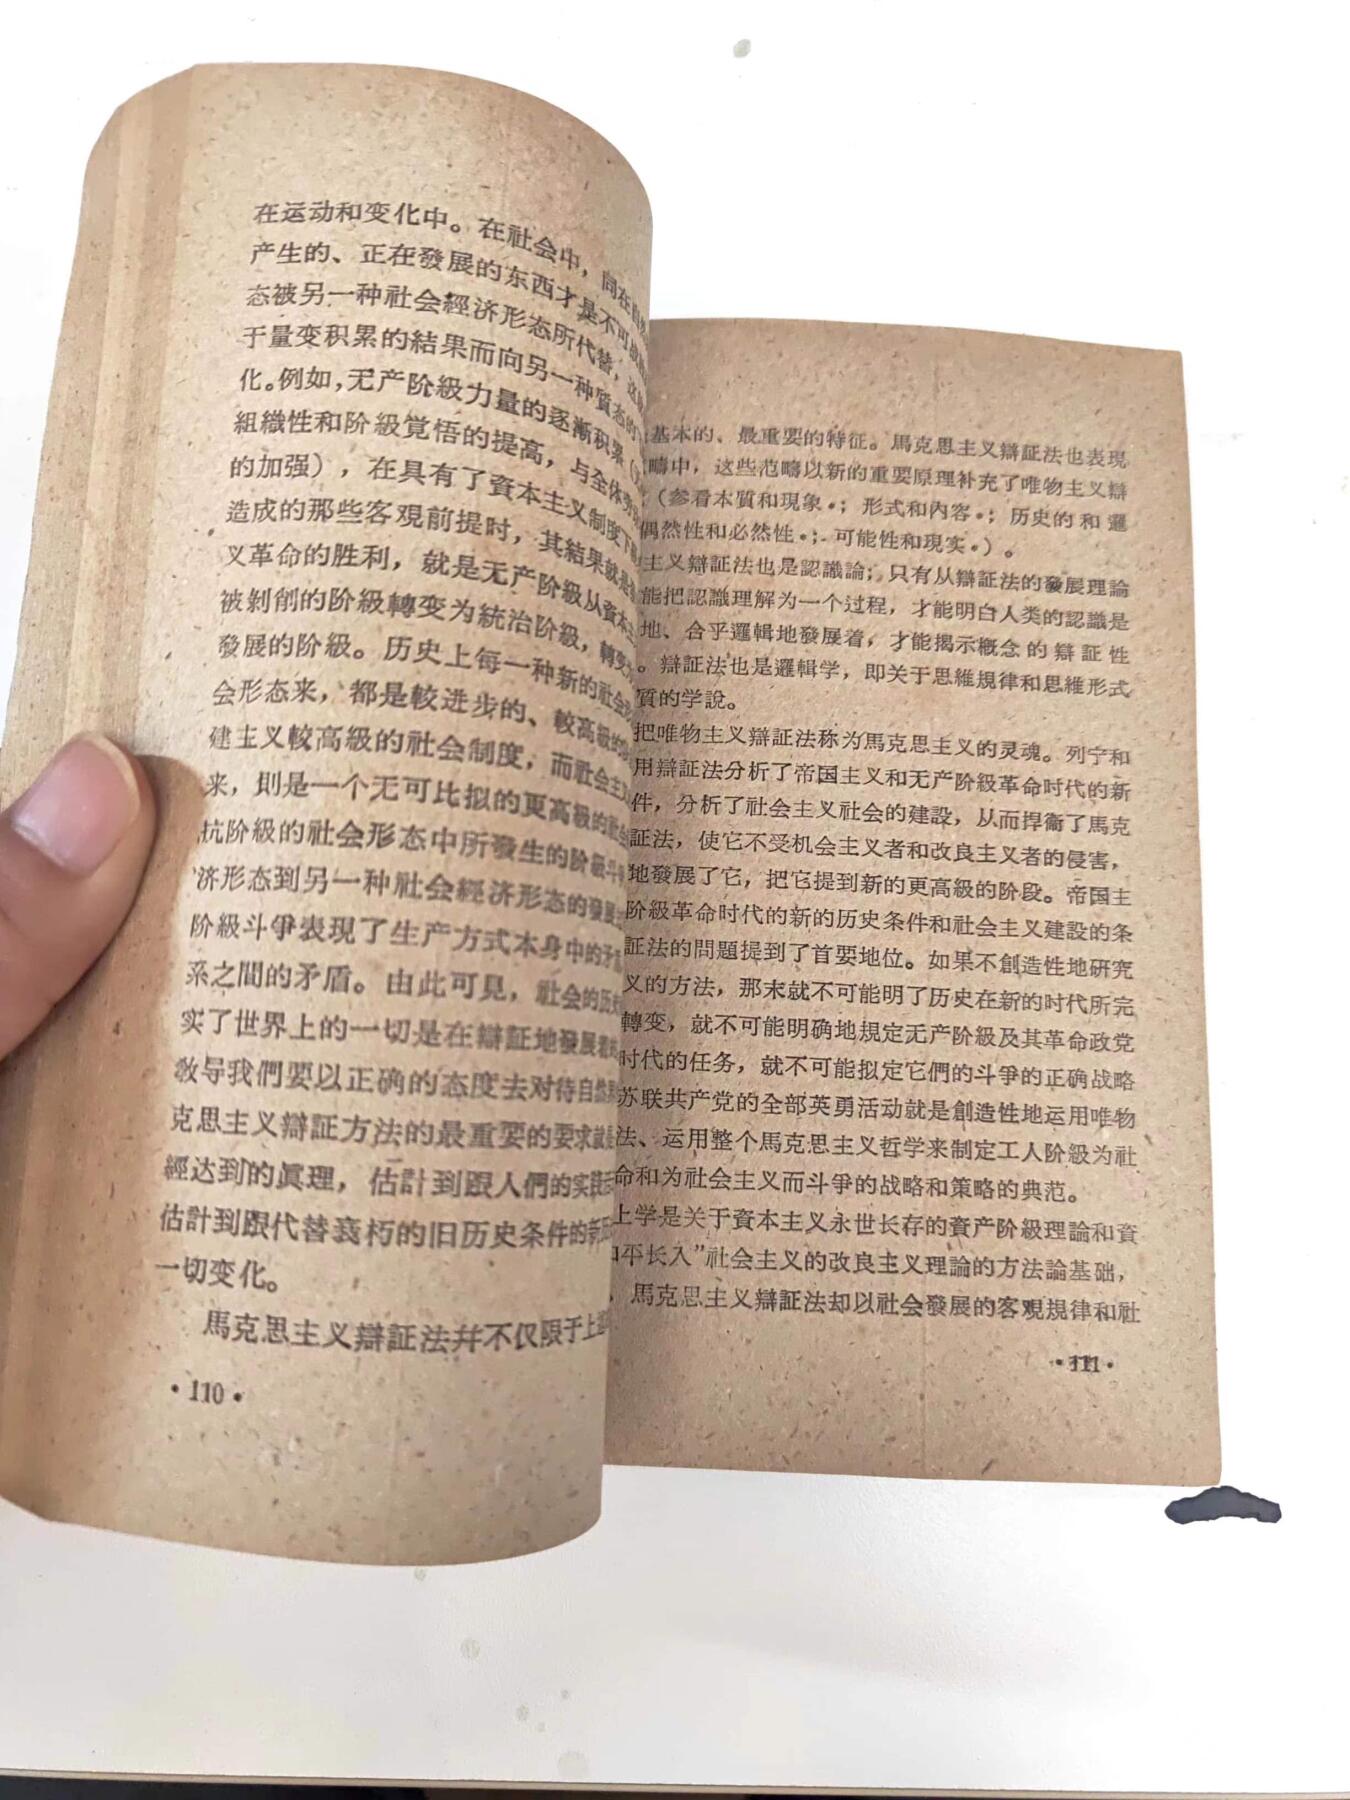 在运动和变化中。在社会中，同在自
产生的、正在發展的东西才是不可战
态被另一种社会經济形态所代替，这
于量变积累的結果而向另一种質态的
化。例如，无产阶級力量的逐漸积累（
組織性和阶級覚悟的提高，与全体劳
的加强），在具有了資本主义制度下
造成的那些客观前提时，其結果就是
义革命的胜利，就是无产阶級从資本主
被剝削的阶級轉变为統治阶級，轉变
發展的阶級。历史上每一种新的社会
会形态来，都是較进步的、較高級的
建主义較高級的社会制度，而社会主义
来，則是一个无可比拟的更高級的社会
抗阶級的社会形态中所發生的阶級斗
济形态到另一种社会經济形态的發展
阶級斗爭表現了生产方式本身中的矛
系之間的矛盾。由此可見，社会的历史
实了世界上的一切是在辯証地發展着
教导我們要以正确的态度去对待自然
克思主义辯証方法的最重要的要求就是
經达到的眞理，估計到跟人們的实践
估計到跟代替衰朽的旧历史条件的新
一切变化。
馬克思主义辯証法幷不仅限于上
·110·
基本的、最重要的特征。馬克思主义辯証法也表現
疇中，这些范疇以新的重要原理补充了唯物主义辯
（参看本質和現象*；形式和內容*；历史的和邏
偶然性和必然性*；可能性和現实*）。
主义辯証法也是認識論；只有从辯証法的發展理論
能把認識理解为一个过程，才能明白人类的認識是
地、合乎邏輯地發展着，才能揭示概念的辯証性
。辯証法也是邏輯学，即关于思維規律和思維形式
質的学說。
把唯物主义辯証法称为馬克思主义的灵魂。列宁和
用辯証法分析了帝国主义和无产阶級革命时代的新
件，分析了社会主义社会的建設，从而捍衞了馬克
証法，使它不受机会主义者和改良主义者的侵害，
地發展了它，把它提到新的更高級的阶段。帝国主
阶級革命时代的新的历史条件和社会主义建設的条
証法的問題提到了首要地位。如果不創造性地研究
义的方法，那末就不可能明了历史在新的时代所完
轉变，就不可能明确地規定无产阶級及其革命政党
时代的任务，就不可能拟定它們的斗爭的正确战略
苏联共产党的全部英勇活动就是創造性地运用唯物
法、运用整个馬克思主义哲学来制定工人阶級为社
命和为社会主义而斗爭的战略和策略的典范。
上学是关于資本主义永世长存的資产阶級理論和資
和平长入”社会主义的改良主义理論的方法論基础，
，馬克思主义辯証法却以社会發展的客观規律和社
·111·